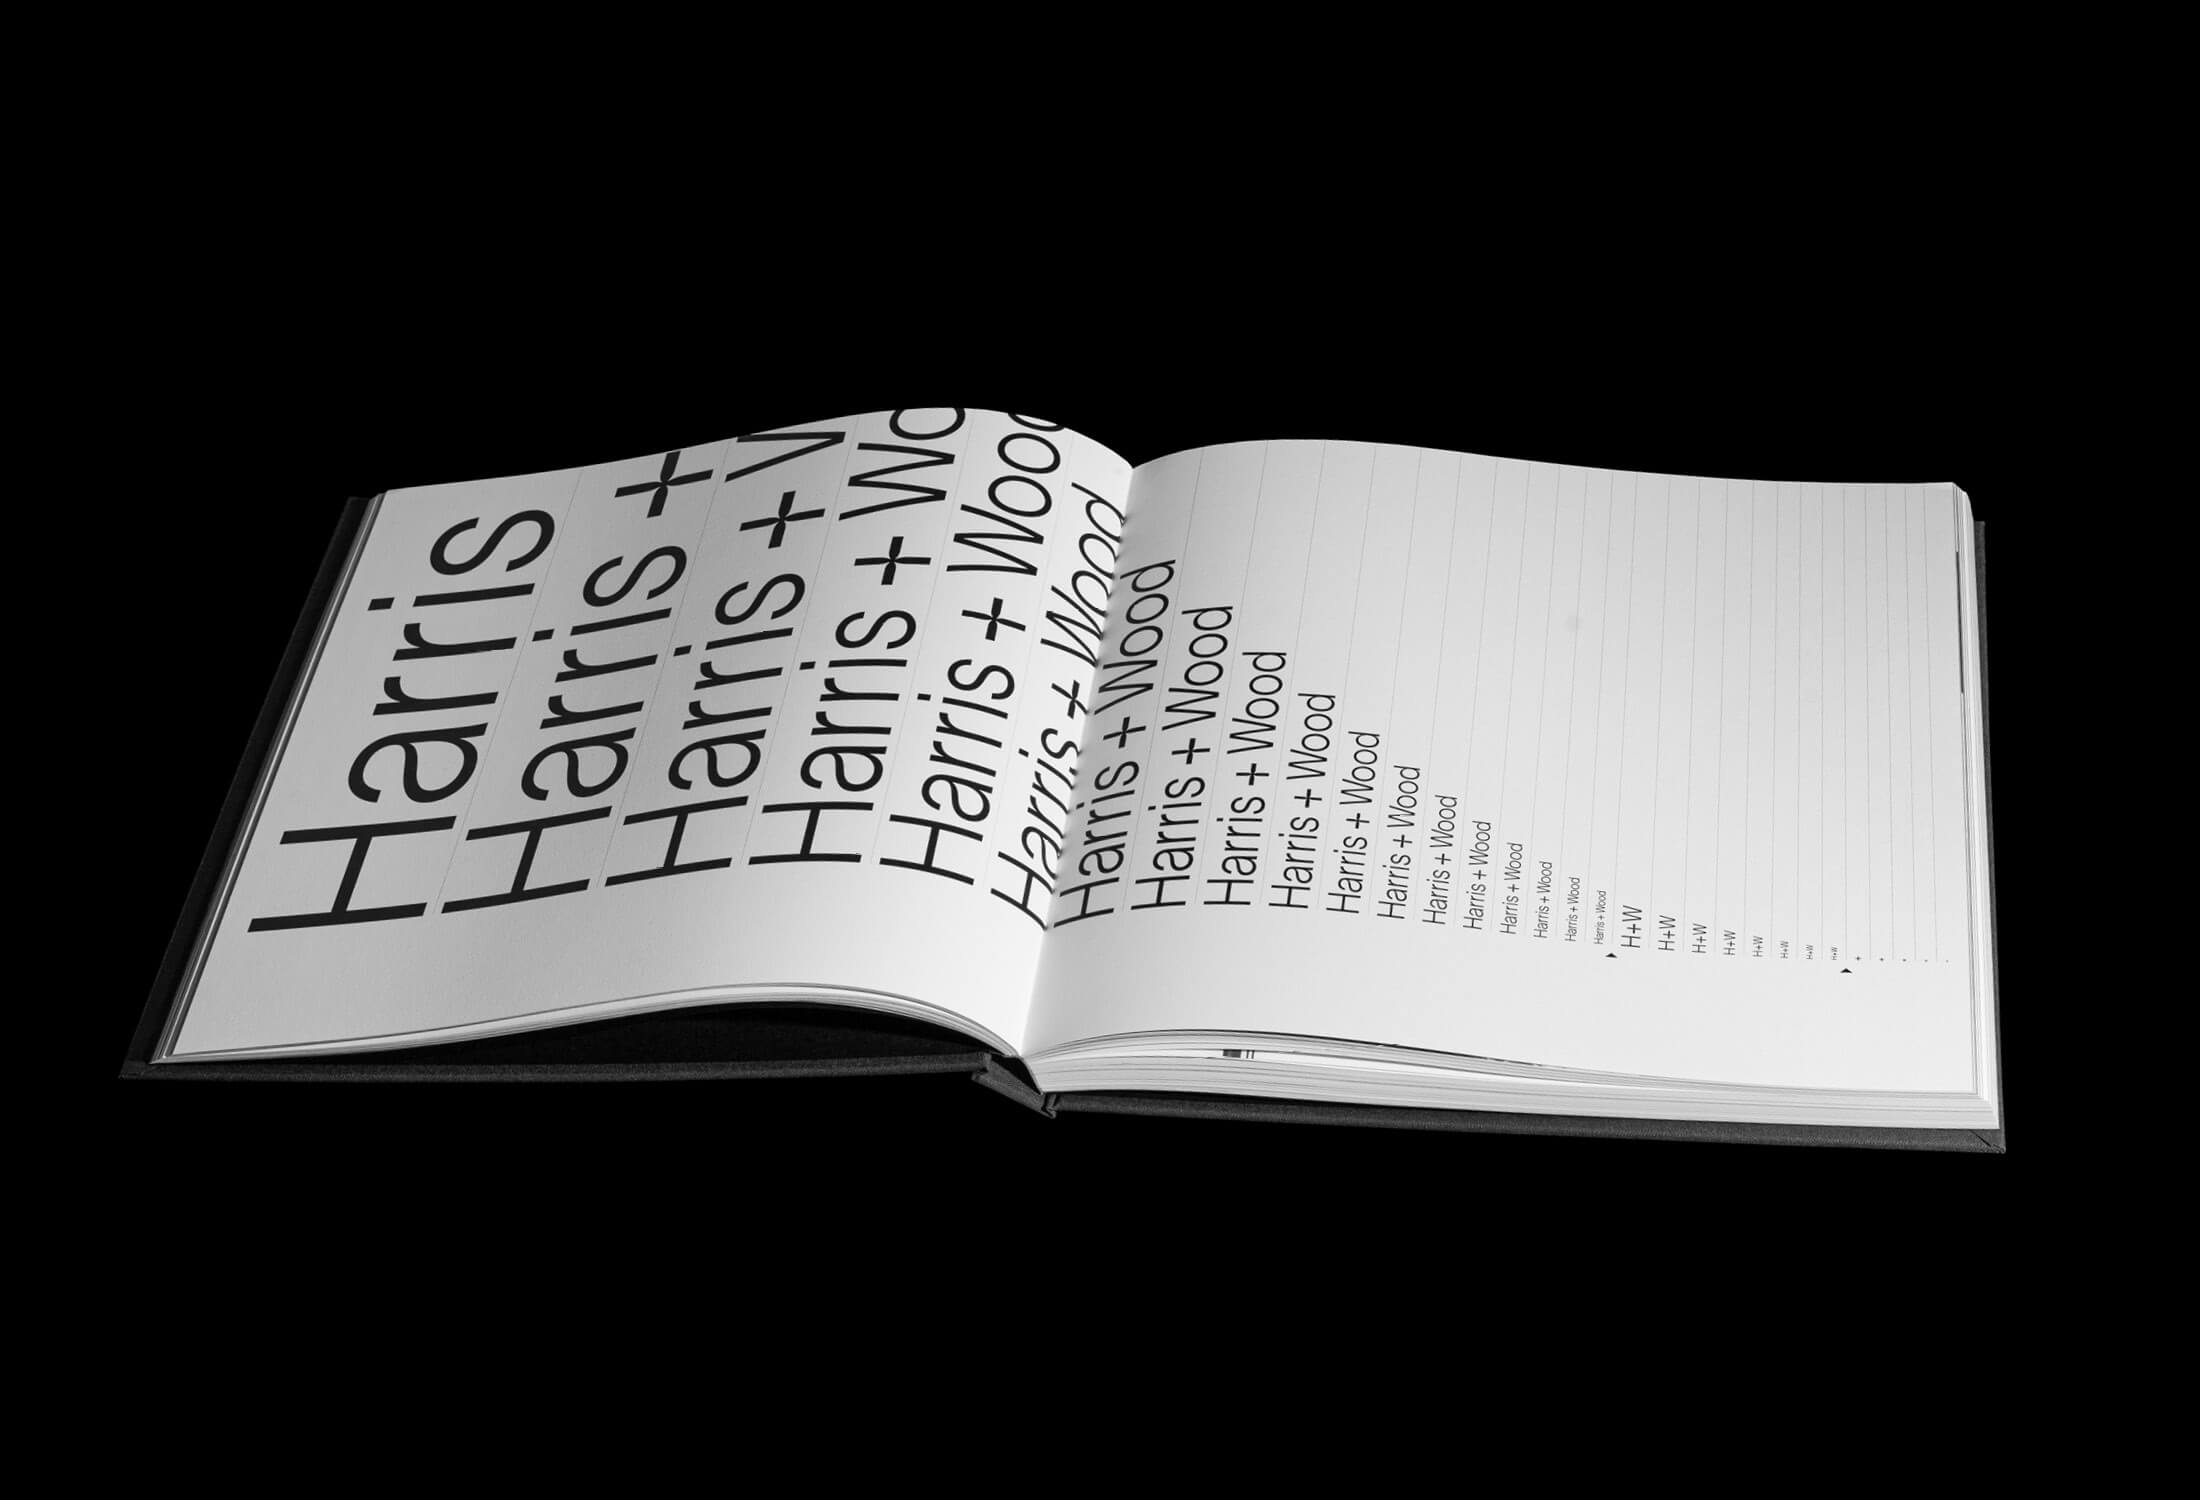 Harris
Harris +
Harris + W
Harris + Wo
Harris + Wood
Harris + Wood
Harris + Wood
Harris + Wood
Harris + Wood
Harris + Wood
Harris + Wood
Harris + Wood
Harris + Wood
Harris + Wood
Harris + Wood
Harris + Wood
Harris + Wood
Harris + Wood
H+W
H+W
H+W
H+W
H+W
H+W
H+W
H+W
+
+
+
+
+